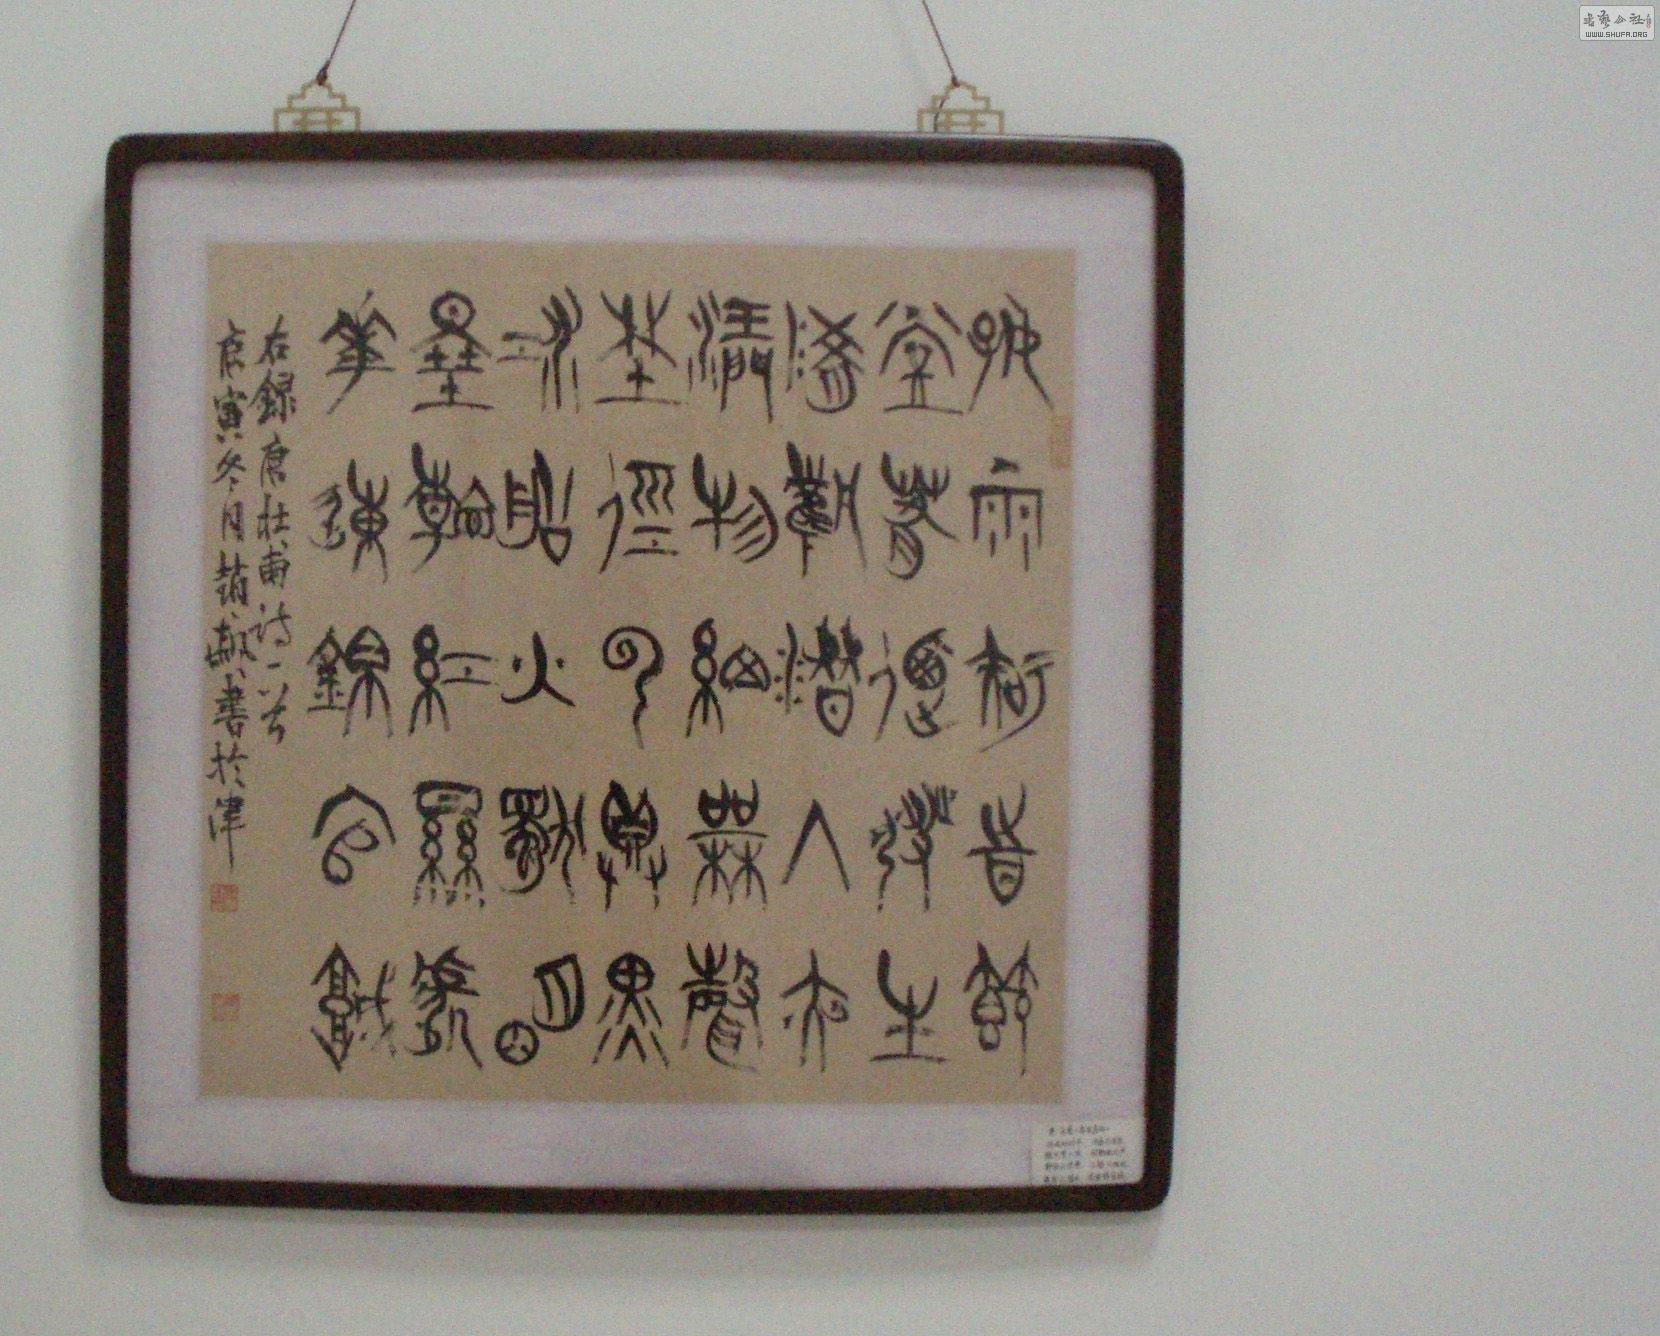 好雨知時節
當春乃發生
隨風潛入夜
潤物細無聲
野徑雲俱黑
江船火獨明
曉看紅濕處
花重錦官城
右錄唐杜甫詩一首
庚寅冬月趙書於津
書藝公社
WWW.SHUFA.ORG